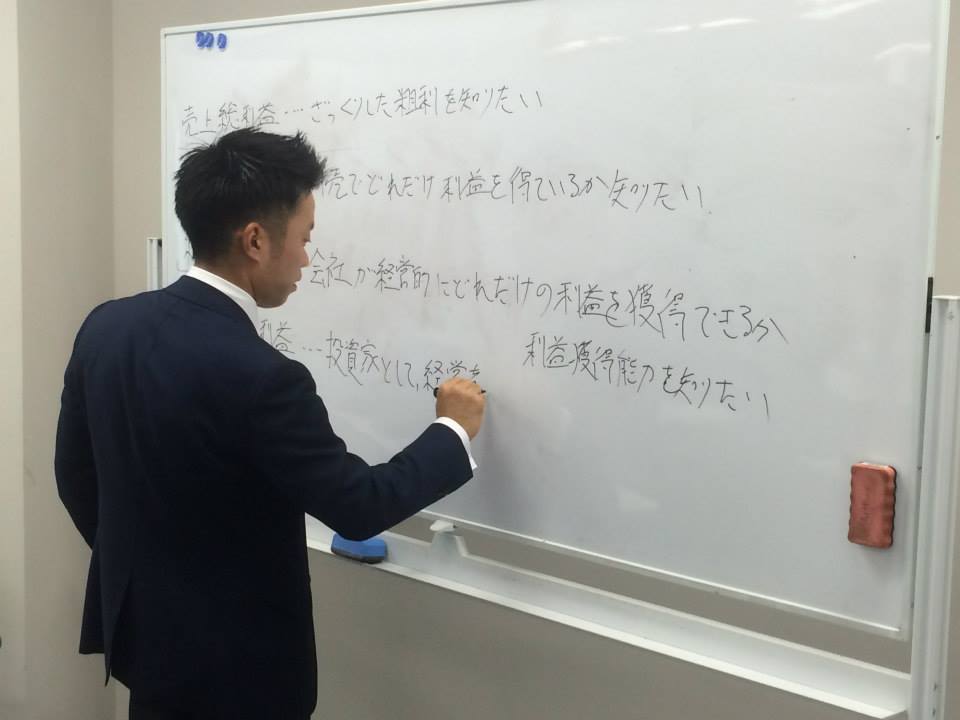 売上総利益…ざっくりした粗利を知りたい
売でどれだけ利益を得ているか知りたい
会社が経営的にどれだけの利益を獲得できるか
利益獲得能力を知りたい
利益…投資家として,経営を